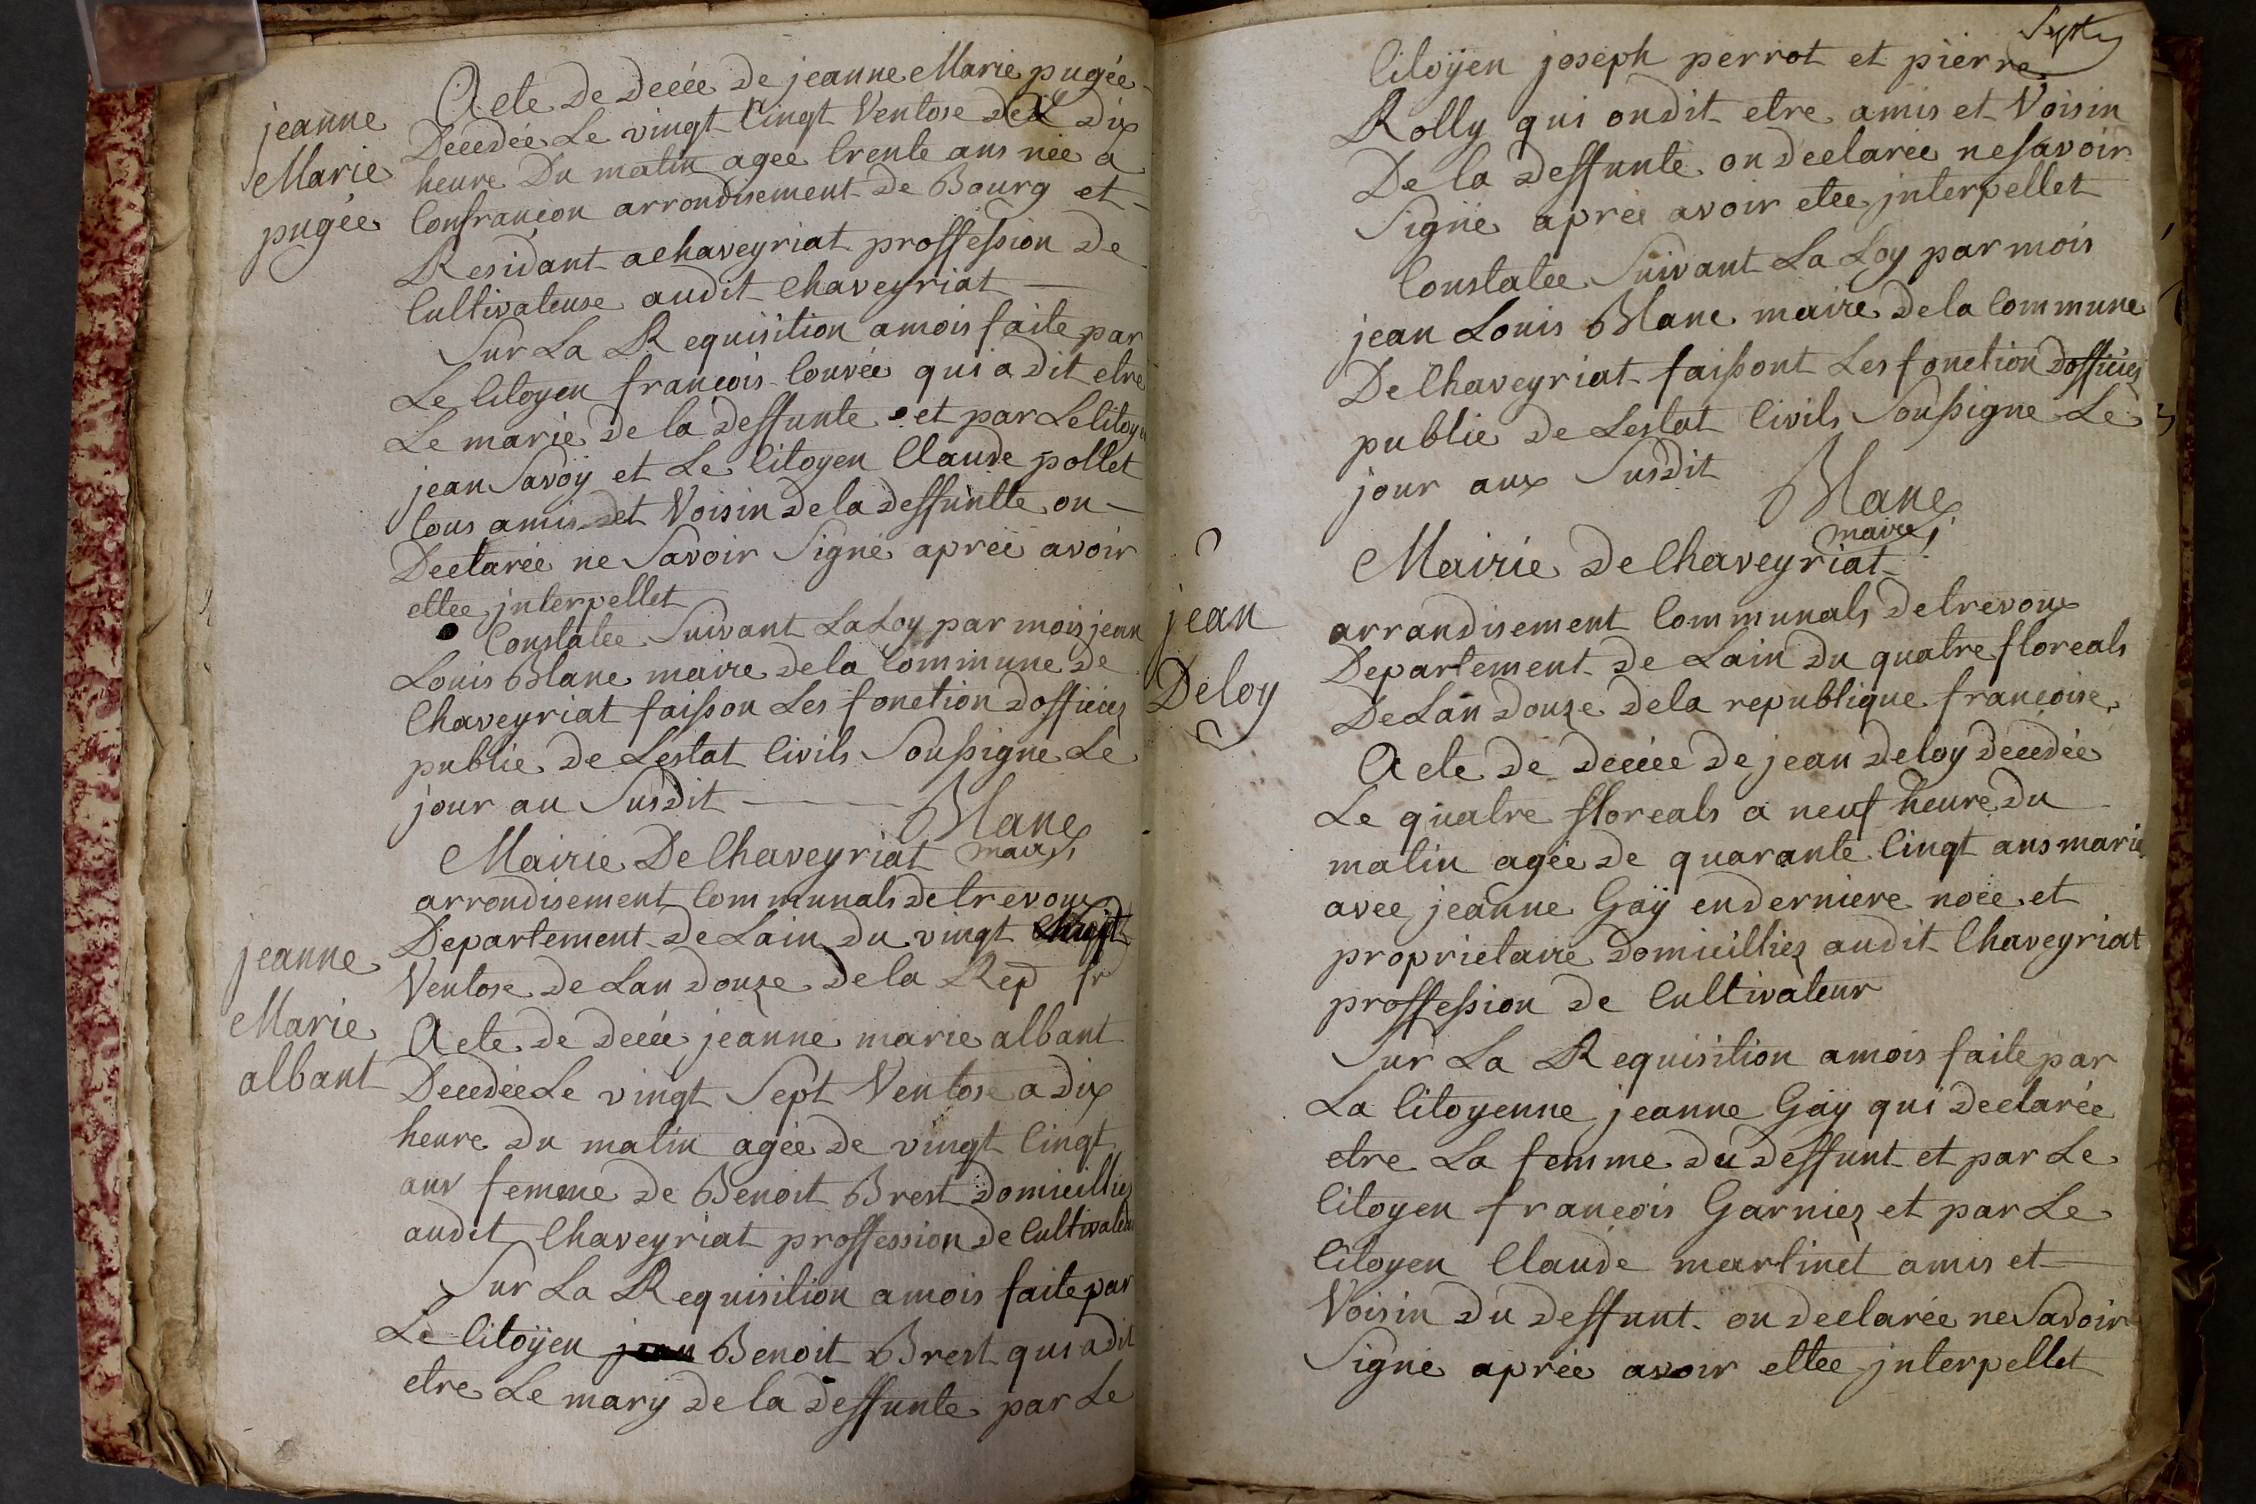 jeanne
Marie
pugée
Acte De Deçée De jeanne Marie pugée
Decedée Le vingt Cinqt Ventose a dix
heure Du matin agee trente ans née a
Confrançon arrondisement De Bourg et
Residant a chaveyriat proffession De
Cultivateuse audit Chaveyriat
Sur La Requisition a mois faite par
Le Citoyen françois Couvée qui a Dit etre
Le marie de la Deffunte et par Le Citoyen
jean Savoÿ et Le Citoyen Claude pollet
tous amis et Voisin De la Deffuntte on
Declarée ne Savoir Signé apreé avoir
ettee jnterpellet
Constatee Suivant La Loy par mois jean
Louis Blanc maire De la Commune De
Chaveyriat faisson Les fonction D officiez
public De Lestat Civils Soussigne Le
jour au Susdit
Blanc
maire
Mairie De Chaveyriat
arrondisement Communals De trevoux
jeanne
Marie
albant
Departement De Lain Du vingt
Ventose De Lan Douze De la Rep fr
Acte De Deçée jeanne marie albant
Decedée Le vingt Sept Ventose a Dix
heure Du matin agée De vingt Cinqt
ans femme De Benoit Brest Domicilliez
audit Chaveyriat proffession De Cultivateur
Sur La Requisition a mois faite par
Le Citoÿen jean Benoit Brest qui a dit
etre Le mary De la Deffunte par Le
Sept
Citoÿen joseph perrot et pierre
Rolly qui on Dit etre amis et Voisin
De la Deffunte on Declarée ne Savoir
Signe aprée avoir etee jnterpellet
Constatee Suivant La Loy par mois
jean Louis Blanc maire De la Commune
De Chaveyriat faissont Les fonction D officiez
public De Lestat Civils Soussigne Le
jour aux Susdit
Blanc
maire
jean
Deloy
Mairie De Chaveyriat
arrandisement Communals De trevoux
Departement De Lain Du quatre floreals
De Lan Douze De la republique françoise
Acte De Deçée De jean Deloy Decedée
Le quatre floreals a neuf heure Du
matin agée De quarante Cinqt ans marie
avec jeanne Gaÿ en derniere noée et
proprietaire Domicilliez audit Chaveyriat
proffession De Cultivateur
Sur La Requisition a mois faite par
La Citoyenne jeanne Gaÿ qui Declarée
etre La femme Du Deffunt et par Le
Citoyen françois Garniez et par Le
Citoyen Claude martinet amis et
Voisin Du Deffunt on Declarée ne Savoir
Signe aprée avoir ettee jnterpellet